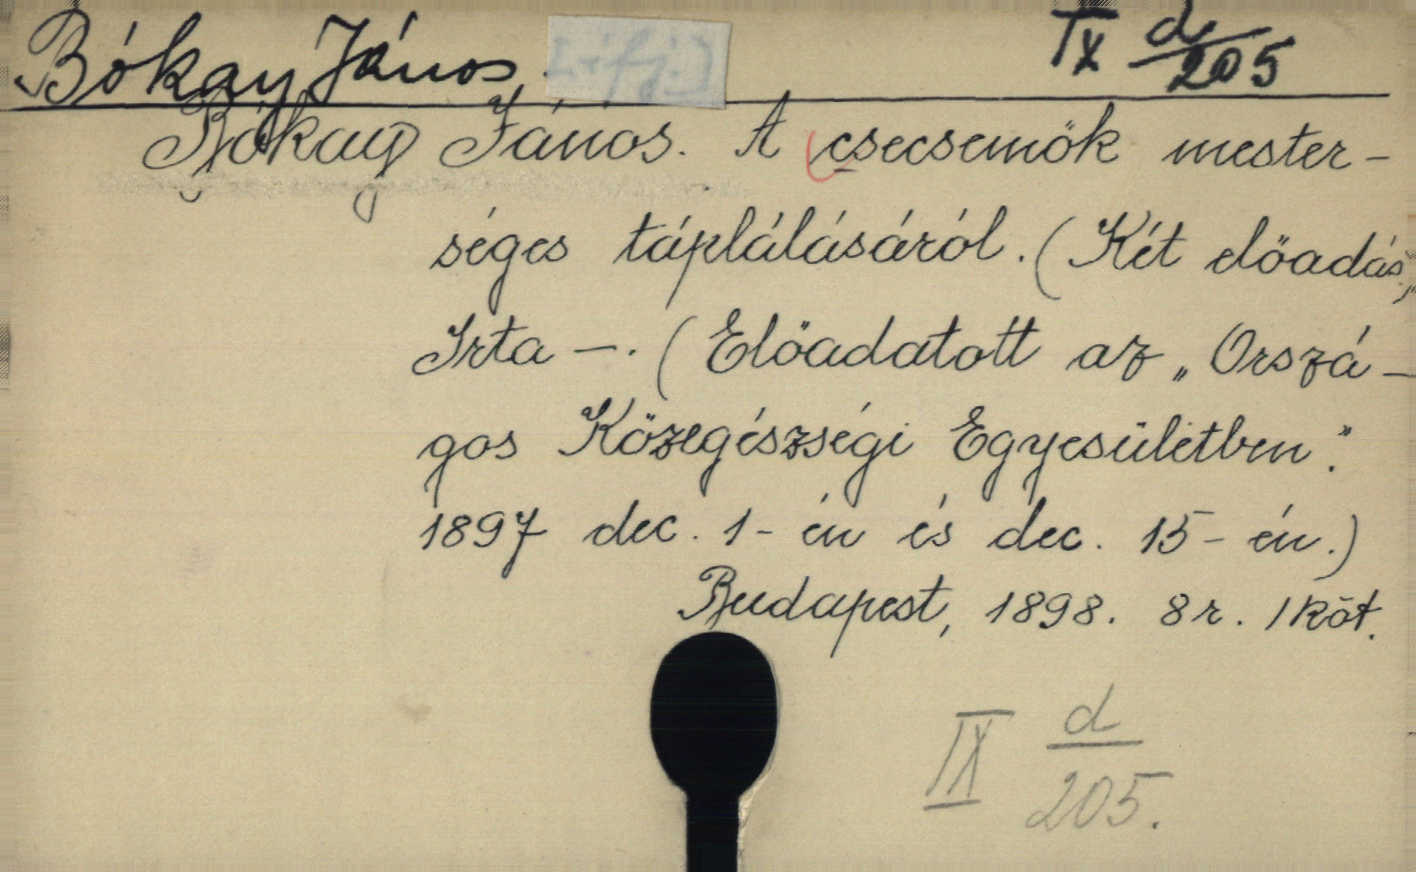 Bókay János. IX d/205
Bókay János. A csecsemők mester-
séges táplálásáról. (Két előadás,
Irta —. (Előadatott az „Orszá-
gos Közegészségi Egyesületben".
1897 dec. 1-én és dec. 15-én.)
Budapest, 1898. 8r. 1 köt.
IX d/205.